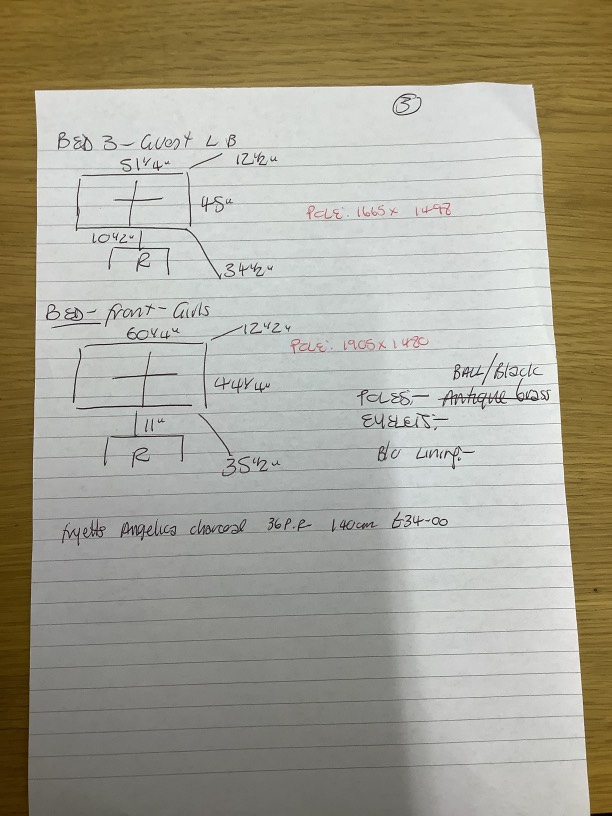 3
BED 3 - Guest L B
51 1/4" 12 1/2"
48"
POLE: 1665 x 1498
10 1/2"
R
34 1/2"
BED - front - Girls
60 1/4" 12 1/2"
POLE: 1905 x 1480
44 1/4"
BALL/Black
POLES:- Antique brass
EYELETS:-
11"
R
35 1/2"
B/O Lining:-
fryetts Angelica charcoal 36 P.R 140cm £34-00